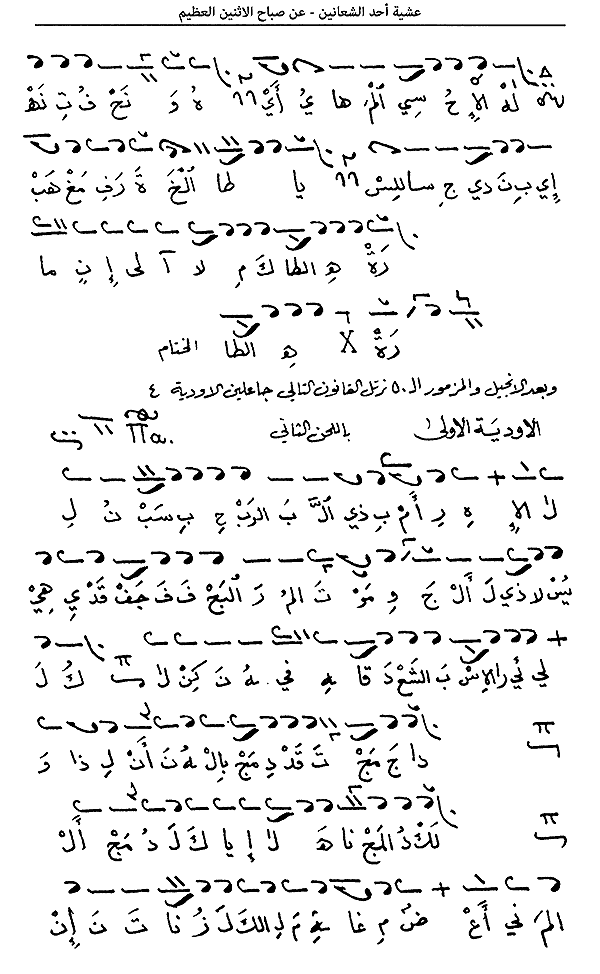 عشية أحد الشعانين - عن صباح الاثنين العظيم
لَهْ الإِ حُ سي الْمَ ها يُ أَيْ هُ وَ نَحْ فُ تِ نَهْ
إِي بِ نَ دي جِ سا لِلِسْ يا طا الْخَ ةَ رَفِ مَغْ هَبْ
رَةْ هِ الطا كَ مِ لا آ لى إِ نِ ما
رَةْ X هِ الطا الختام
وبعد الانجيل والمزمور الـ٥٠ نرتّل القانون التالي جاعلين الاودية ٤
الاوديَة الاولى باللحن الثاني Πα.
لا الإِ هِ رِ أَمْ بِ ذي الَّ بَ الرَبْ حِ بِ سَبْ نُ لِ
لا ذي لَ أَلْ جَ وِ مَوْ تَ المُ رَ الْبَحْ فَ فَ جَفْ قَدْ ي هِيْ
لي ئي را لإِسْ بَ الشَعْ دَ قا هِ في هُ نَ كِنْ لا كُ لَ
دا جَ مَجْ تَ قَدْ دِ مَجْ بِالْ هُ نَ أَنْ لِ ذا وَ
لَكْ دُ المَجْ نا هَ لا إِ يا كَ لَ دُ مَجْ أَلْ
المَ ني أَعْ ضُ مِ غا هِ مَ لِ الكَ لَ زُ نا تَ نَ إِنْ